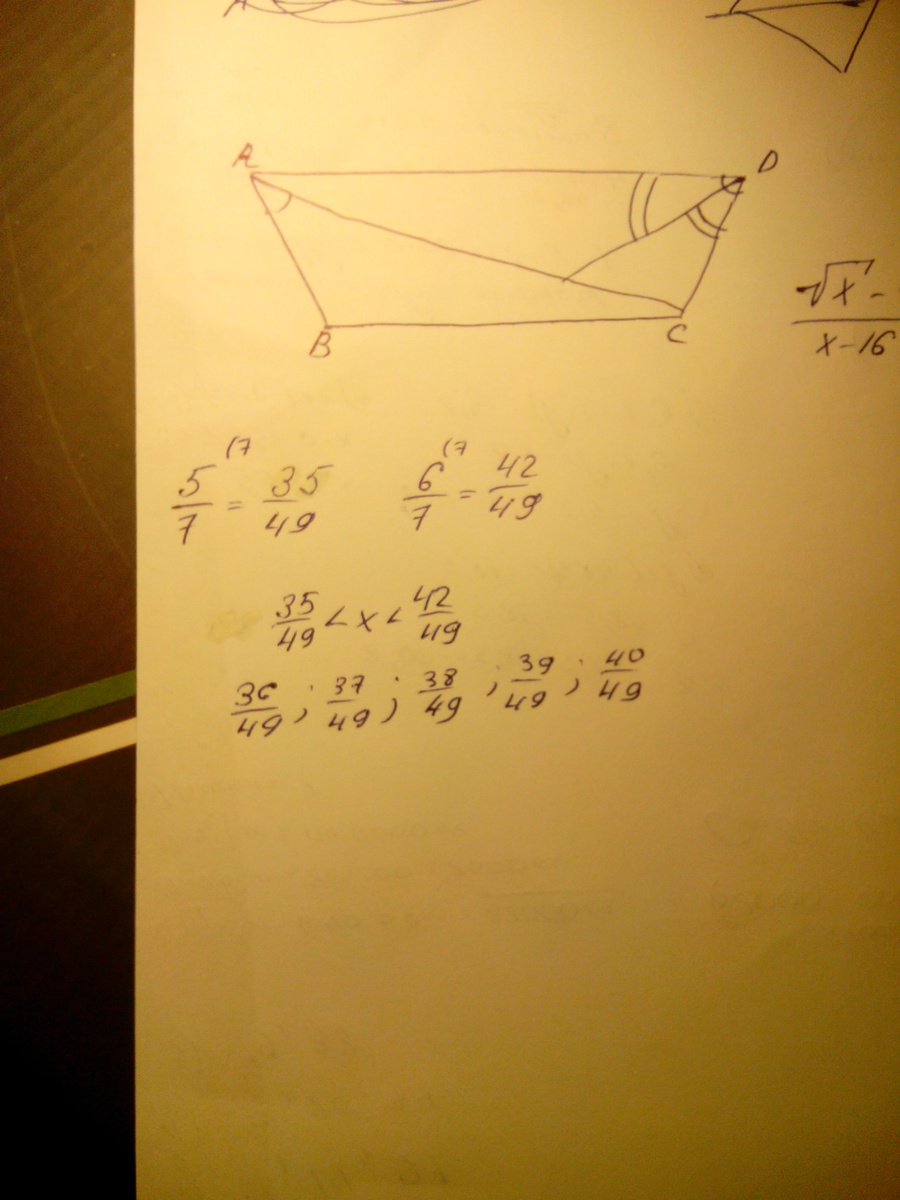 A
A D
B C
√x -
x-16
5/7 (7 = 35/49 6/7 (7 = 42/49
35/49 < x < 42/49
36/49 ; 37/49 ; 38/49 ; 39/49 ; 40/49